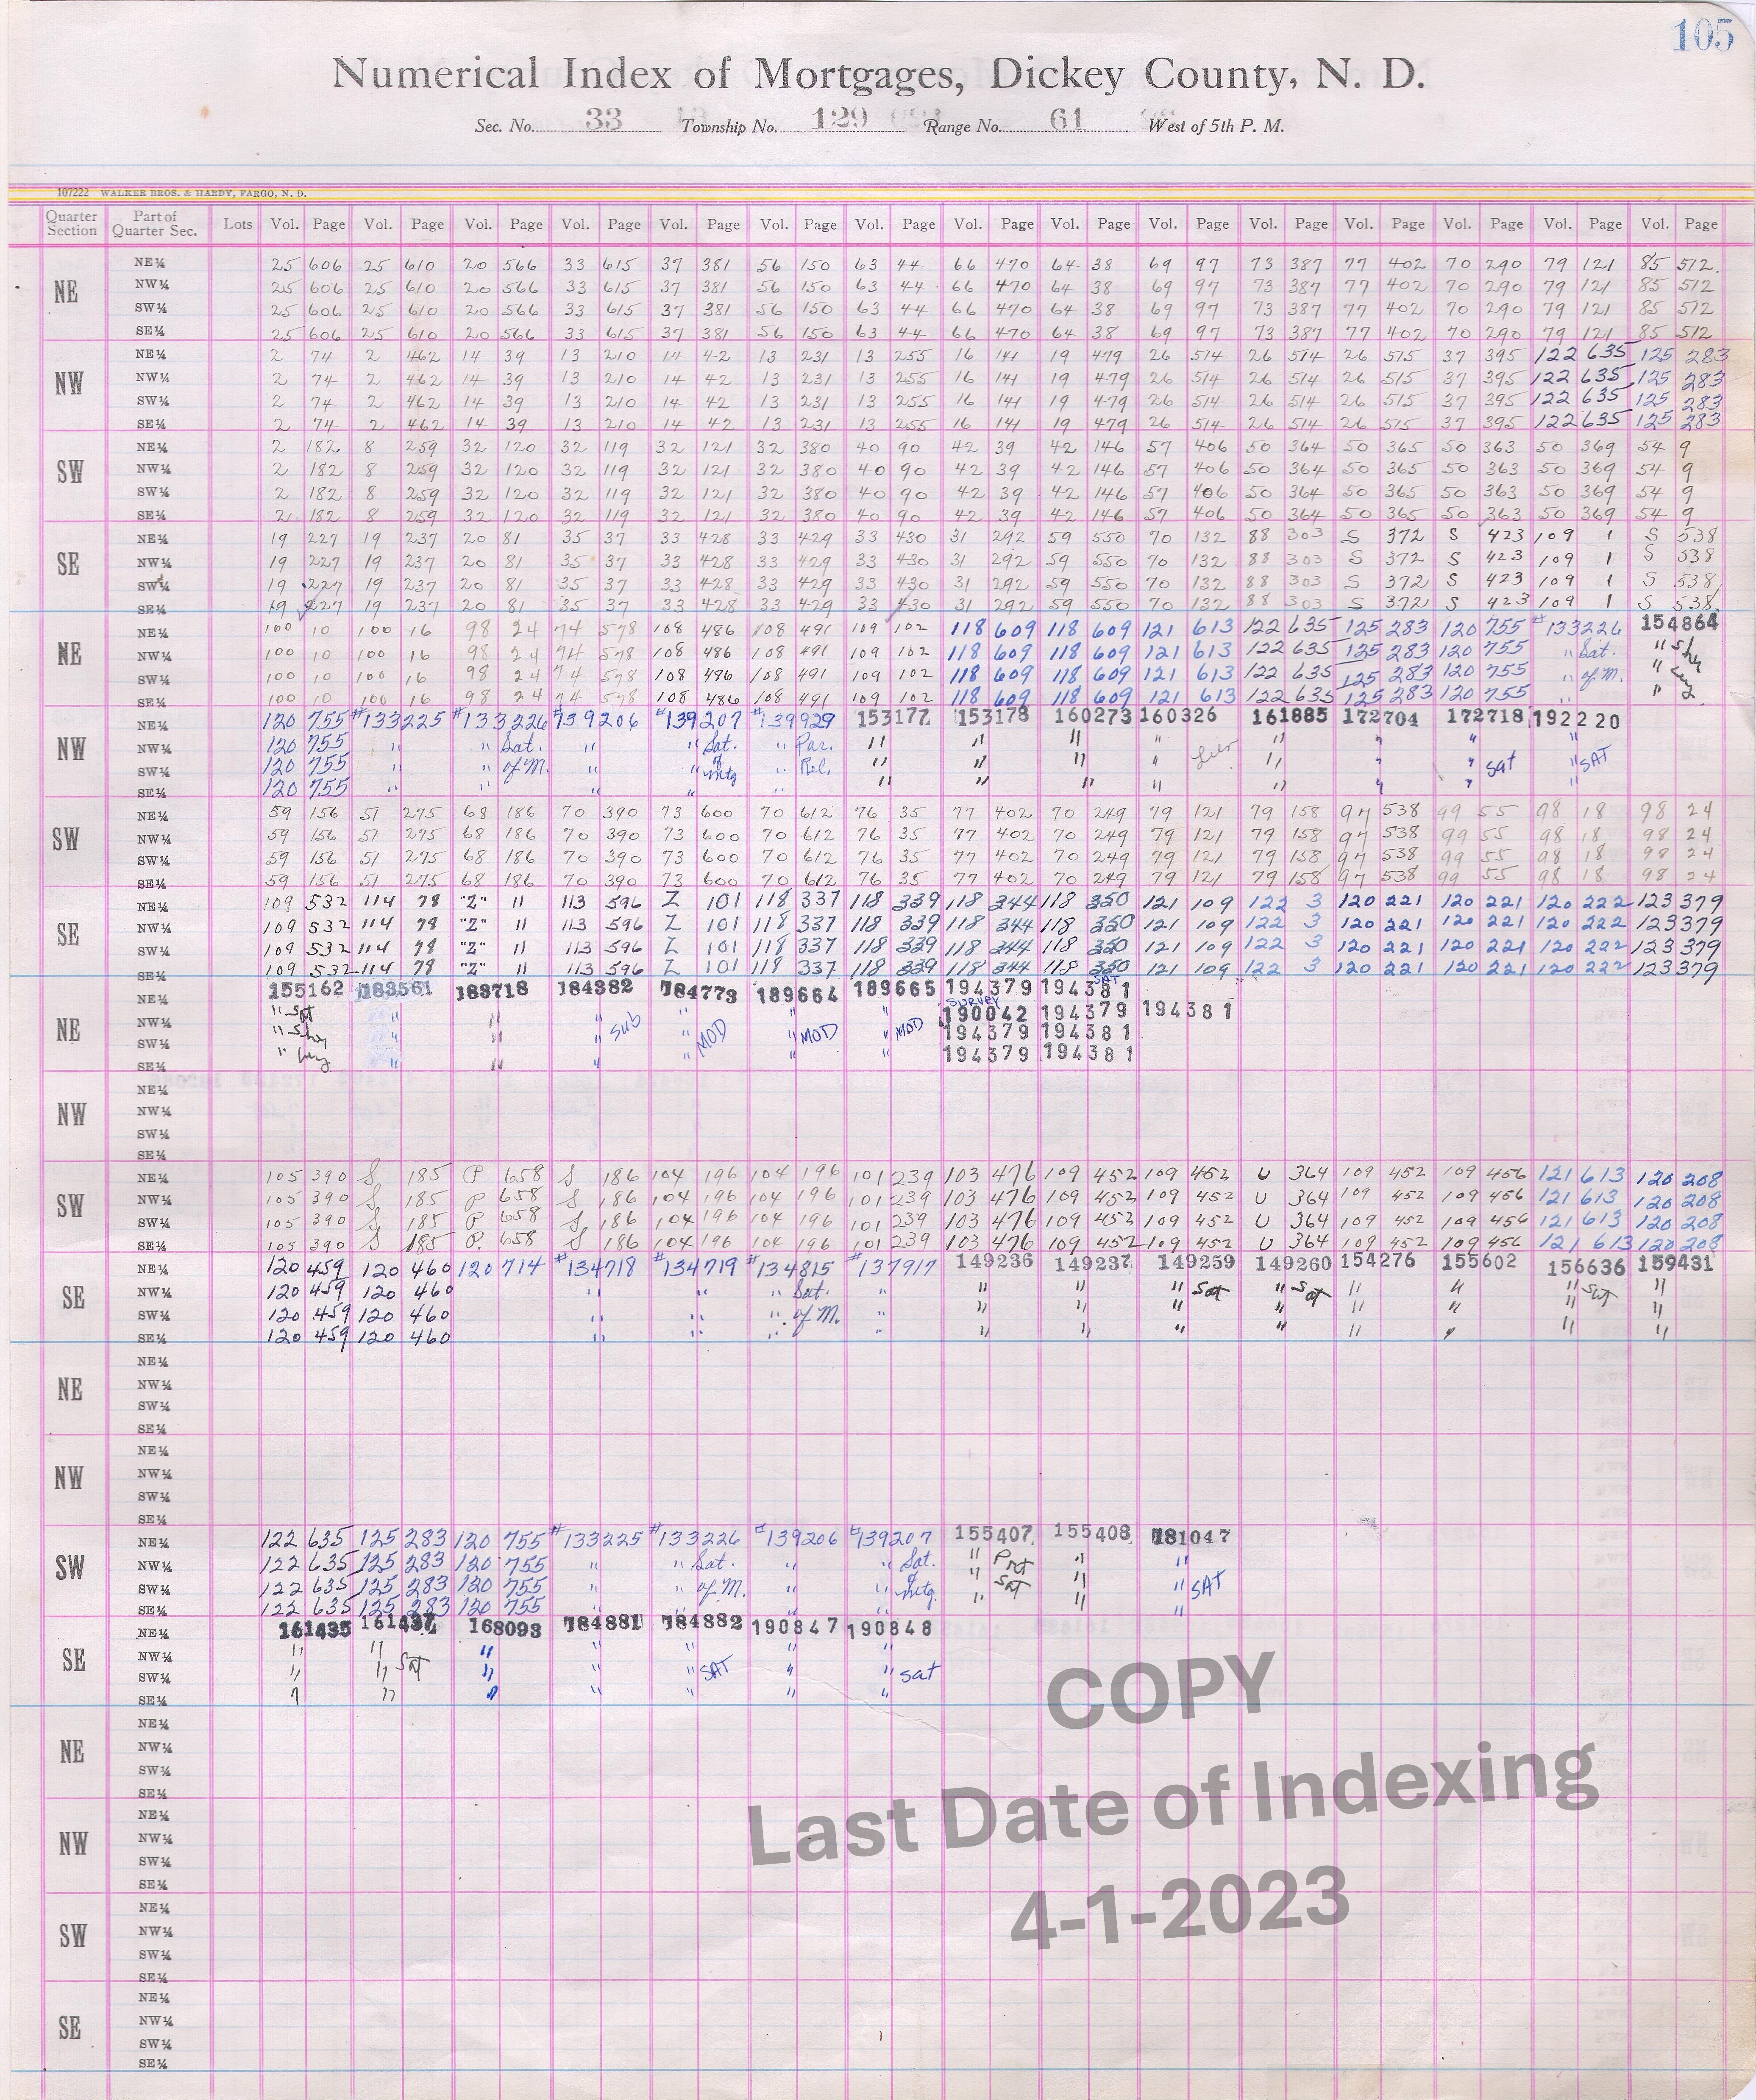 105
Numerical Index of Mortgages, Dickey County, N. D.
Sec. No. 33 Township No. 129 Range No. 61 West of 5th P. M.
107222 WALKER BROS. & HARDY, FARGO, N. D.
Quarter Section Part of Quarter Sec. Lots Vol. Page Vol. Page Vol. Page Vol. Page Vol. Page Vol. Page Vol. Page Vol. Page Vol. Page Vol. Page Vol. Page Vol. Page Vol. Page Vol. Page Vol. Page
NE
NE¼ 25 606 25 610 20 566 33 615 37 381 56 150 63 44 66 470 64 38 69 97 73 387 77 402 70 290 79 121 85 512.
NW¼ 25 606 25 610 20 566 33 615 37 381 56 150 63 44 66 470 64 38 69 97 73 387 77 402 70 290 79 121 85 512
SW¼ 25 606 25 610 20 566 33 615 37 381 56 150 63 44 66 470 64 38 69 97 73 387 77 402 70 290 79 121 85 512
SE¼ 25 606 25 610 20 566 33 615 37 381 56 150 63 44 66 470 64 38 69 97 73 387 77 402 70 290 79 121 85 512
NW
NE¼ 2 74 2 462 14 39 13 210 14 42 13 231 13 255 16 141 19 479 26 514 26 514 26 515 37 395 122 635 125 283
NW¼ 2 74 2 462 14 39 13 210 14 42 13 231 13 255 16 141 19 479 26 514 26 514 26 515 37 395 122 635 125 283
SW¼ 2 74 2 462 14 39 13 210 14 42 13 231 13 255 16 141 19 479 26 514 26 514 26 515 37 395 122 635 125 283
SE¼ 2 74 2 462 14 39 13 210 14 42 13 231 13 255 16 141 19 479 26 514 26 514 26 515 37 395 122 635 125 283
SW
NE¼ 2 182 8 259 32 120 32 119 32 121 32 380 40 90 42 39 42 146 57 406 50 364 50 365 50 363 50 369 54 9
NW¼ 2 182 8 259 32 120 32 119 32 121 32 380 40 90 42 39 42 146 57 406 50 364 50 365 50 363 50 369 54 9
SW¼ 2 182 8 259 32 120 32 119 32 121 32 380 40 90 42 39 42 146 57 406 50 364 50 365 50 363 50 369 54 9
SE¼ 2 182 8 259 32 120 32 119 32 121 32 380 40 90 42 39 42 146 57 406 50 364 50 365 50 363 50 369 54 9
SE
NE¼ 19 227 19 237 20 81 35 37 33 428 33 429 33 430 31 292 59 550 70 132 88 303 S 372 S 423 109 1 S 538
NW¼ 19 227 19 237 20 81 35 37 33 428 33 429 33 430 31 292 59 550 70 132 88 303 S 372 S 423 109 1 S 538
SW¼ 19 227 19 237 20 81 35 37 33 428 33 429 33 430 31 292 59 550 70 132 88 303 S 372 S 423 109 1 S 538
SE¼ 19 227 19 237 20 81 35 37 33 428 33 429 33 430 31 292 59 550 70 132 88 303 S 372 S 423 109 1 S 538
NE
NE¼ 100 10 100 16 98 24 74 578 108 486 108 491 109 102 118 609 118 609 121 613 122 635 125 283 120 755 #133226 154864
NW¼ 100 10 100 16 98 24 74 578 108 486 108 491 109 102 118 609 118 609 121 613 122 635 125 283 120 755 " Sat. "
SW¼ 100 10 100 16 98 24 74 578 108 486 108 491 109 102 118 609 118 609 121 613 122 635 125 283 120 755 " of M. "
SE¼ 100 10 100 16 98 24 74 578 108 486 108 491 109 102 118 609 118 609 121 613 122 635 125 283 120 755 " "
NW
NE¼ 120 755 #133225 #133226 #139206 #139207 #139929 153177 153178 160273 160326 161885 172704 172718 192220
NW¼ 120 755 " " Sat. " " Sat. " Par. " " " " " " " "
SW¼ 120 755 " " of M. " " of mtg " Rel. " " " " " " " Sat " SAT
SE¼ 120 755 " " " " " " " " " " " " "
SW
NE¼ 59 156 51 275 68 186 70 390 73 600 70 612 76 35 77 402 70 249 79 121 79 158 97 538 99 55 98 18 98 24
NW¼ 59 156 51 275 68 186 70 390 73 600 70 612 76 35 77 402 70 249 79 121 79 158 97 538 99 55 98 18 98 24
SW¼ 59 156 51 275 68 186 70 390 73 600 70 612 76 35 77 402 70 249 79 121 79 158 97 538 99 55 98 18 98 24
SE¼ 59 156 51 275 68 186 70 390 73 600 70 612 76 35 77 402 70 249 79 121 79 158 97 538 99 55 98 18 98 24
SE
NE¼ 109 532 114 78 "Z" 11 113 596 Z 101 118 337 118 339 118 344 118 350 121 109 122 3 120 221 120 221 120 222 123 379
NW¼ 109 532 114 78 "Z" 11 113 596 Z 101 118 337 118 339 118 344 118 350 121 109 122 3 120 221 120 221 120 222 123 379
SW¼ 109 532 114 78 "Z" 11 113 596 Z 101 118 337 118 339 118 344 118 350 121 109 122 3 120 221 120 221 120 222 123 379
SE¼ 109 532 114 78 "Z" 11 113 596 Z 101 118 337 118 339 118 344 118 350 121 109 122 3 120 221 120 221 120 222 123 379
NE
NE¼ 155162 183561 183718 184382 184773 189664 189665 194379 194381 SAT
NW¼ " Sat " " " Sub " " " SURVEY 190042 194379 194381
SW¼ " " " " " MOD " MOD " MOD 194379 194381
SE¼ " " " " " " " 194379 194381
NW
NE¼
NW¼
SW¼
SE¼
SW
NE¼ 105 390 S 185 P 658 S 186 104 196 104 196 101 239 103 476 109 452 109 452 U 364 109 452 109 456 121 613 120 208
NW¼ 105 390 S 185 P 658 S 186 104 196 104 196 101 239 103 476 109 452 109 452 U 364 109 452 109 456 121 613 120 208
SW¼ 105 390 S 185 P 658 S 186 104 196 104 196 101 239 103 476 109 452 109 452 U 364 109 452 109 456 121 613 120 208
SE¼ 105 390 S 185 P. 658 S 186 104 196 104 196 101 239 103 476 109 452 109 452 U 364 109 452 109 456 121 613 120 208
SE
NE¼ 120 459 120 460 120 714 #134718 #134719 #134815 #137917 149236 149237 149259 149260 154276 155602 156636 159431
NW¼ 120 459 120 460 " " " Sat. " " " " Sat " Sat " " " Sat "
SW¼ 120 459 120 460 " " " of M. " " " " " " " " "
SE¼ 120 459 120 460 " " " " " " " " " " " "
NE
NE¼
NW¼
SW¼
SE¼
NW
NE¼
NW¼
SW¼
SE¼
SW
NE¼ 122 635 125 283 120 755 #133225 #133226 #139206 #139207 155407 155408 181047
NW¼ 122 635 125 283 120 755 " " Sat. " " Sat. " Prt " "
SW¼ 122 635 125 283 120 755 " " of M. " " of mtg. " Sat " " SAT
SE¼ 122 635 125 283 120 755 " " " " " " "
SE
NE¼ 161435 161437 168093 184881 184882 190847 190848
NW¼ " " " " " " "
SW¼ " " Sat " " " SAT " " sat
SE¼ " " " " " " "
NE
NE¼
NW¼
SW¼
SE¼
NW
NE¼
NW¼
SW¼
SE¼
SW
NE¼
NW¼
SW¼
SE¼
SE
NE¼
NW¼
SW¼
SE¼
COPY
Last Date of Indexing
4-1-2023